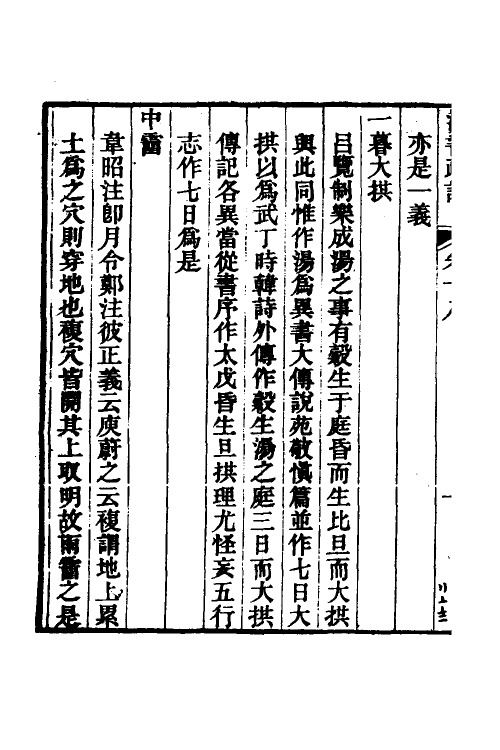 亦是一義
一暮大拱
呂覽制樂成湯之事有穀生于庭昏而生比旦而大拱
與此同惟作湯爲異書大傳說苑敬愼篇並作七日大
拱以爲武丁時韓詩外傳作穀生湯之庭三日而大拱
傳記各異當從書序作太戊昏生旦拱理尤怪妄五行
志作七日爲是
中霤
韋昭注卽月令鄭注彼正義云庾蔚之云複謂地上累
土爲之穴則穿地也複穴皆開其上取明故雨霤之是